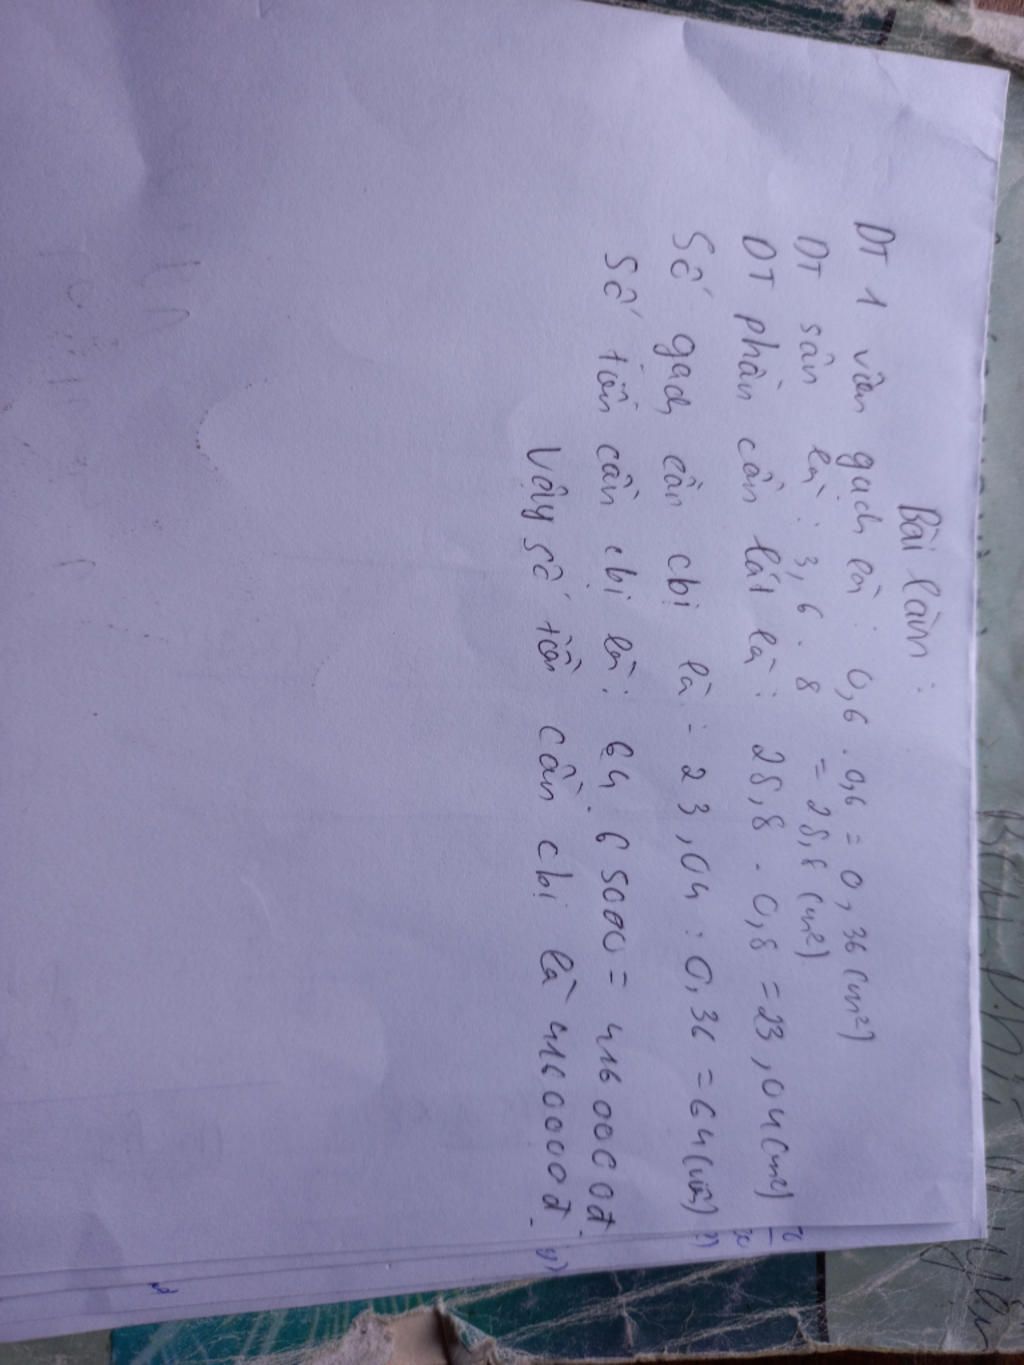 Bài làm :
DT 1 viên gạch là : 0,6 . 0,6 = 0,36 (m²)
DT sân là : 3,6 . 8 = 28,8 (m²)
DT phần cần lát là : 28,8 . 0,8 = 23,04 (m²)
Số gạch cần cbị là : 23,04 : 0,36 = 64 (viên)
Số tiền cần cbị là : 64 . 65000 = 4160000đ.
Vậy số tiền cần cbị là 4160000đ.